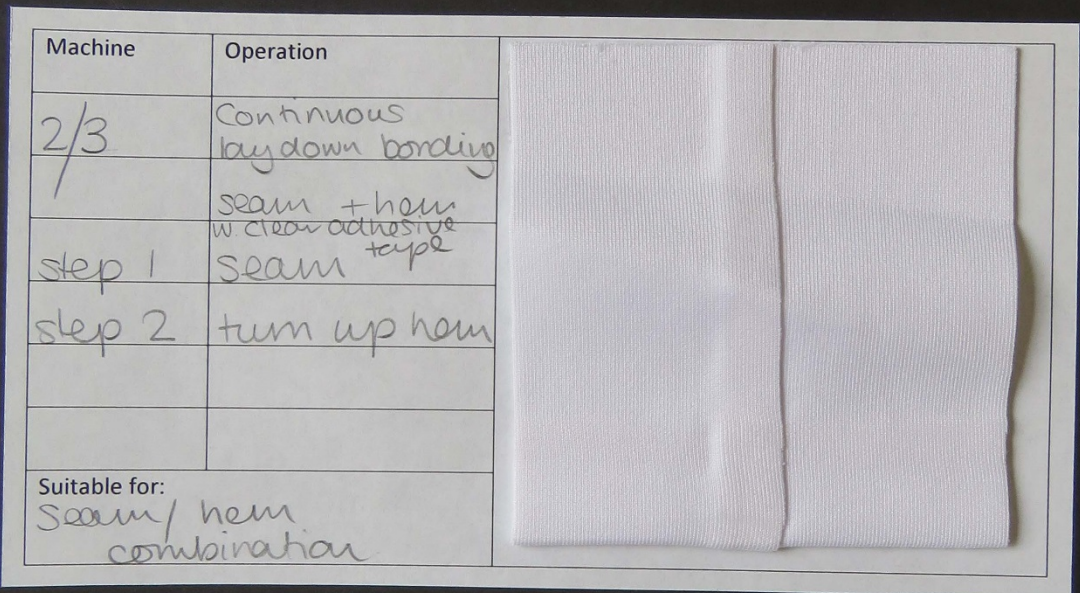 Machine Operation
2/3 Continuous
laydown bonding
seam + hem
w. clear adhesive
tape
step 1 seam
step 2 turn up hem
Suitable for:
Seam/ hem
combination